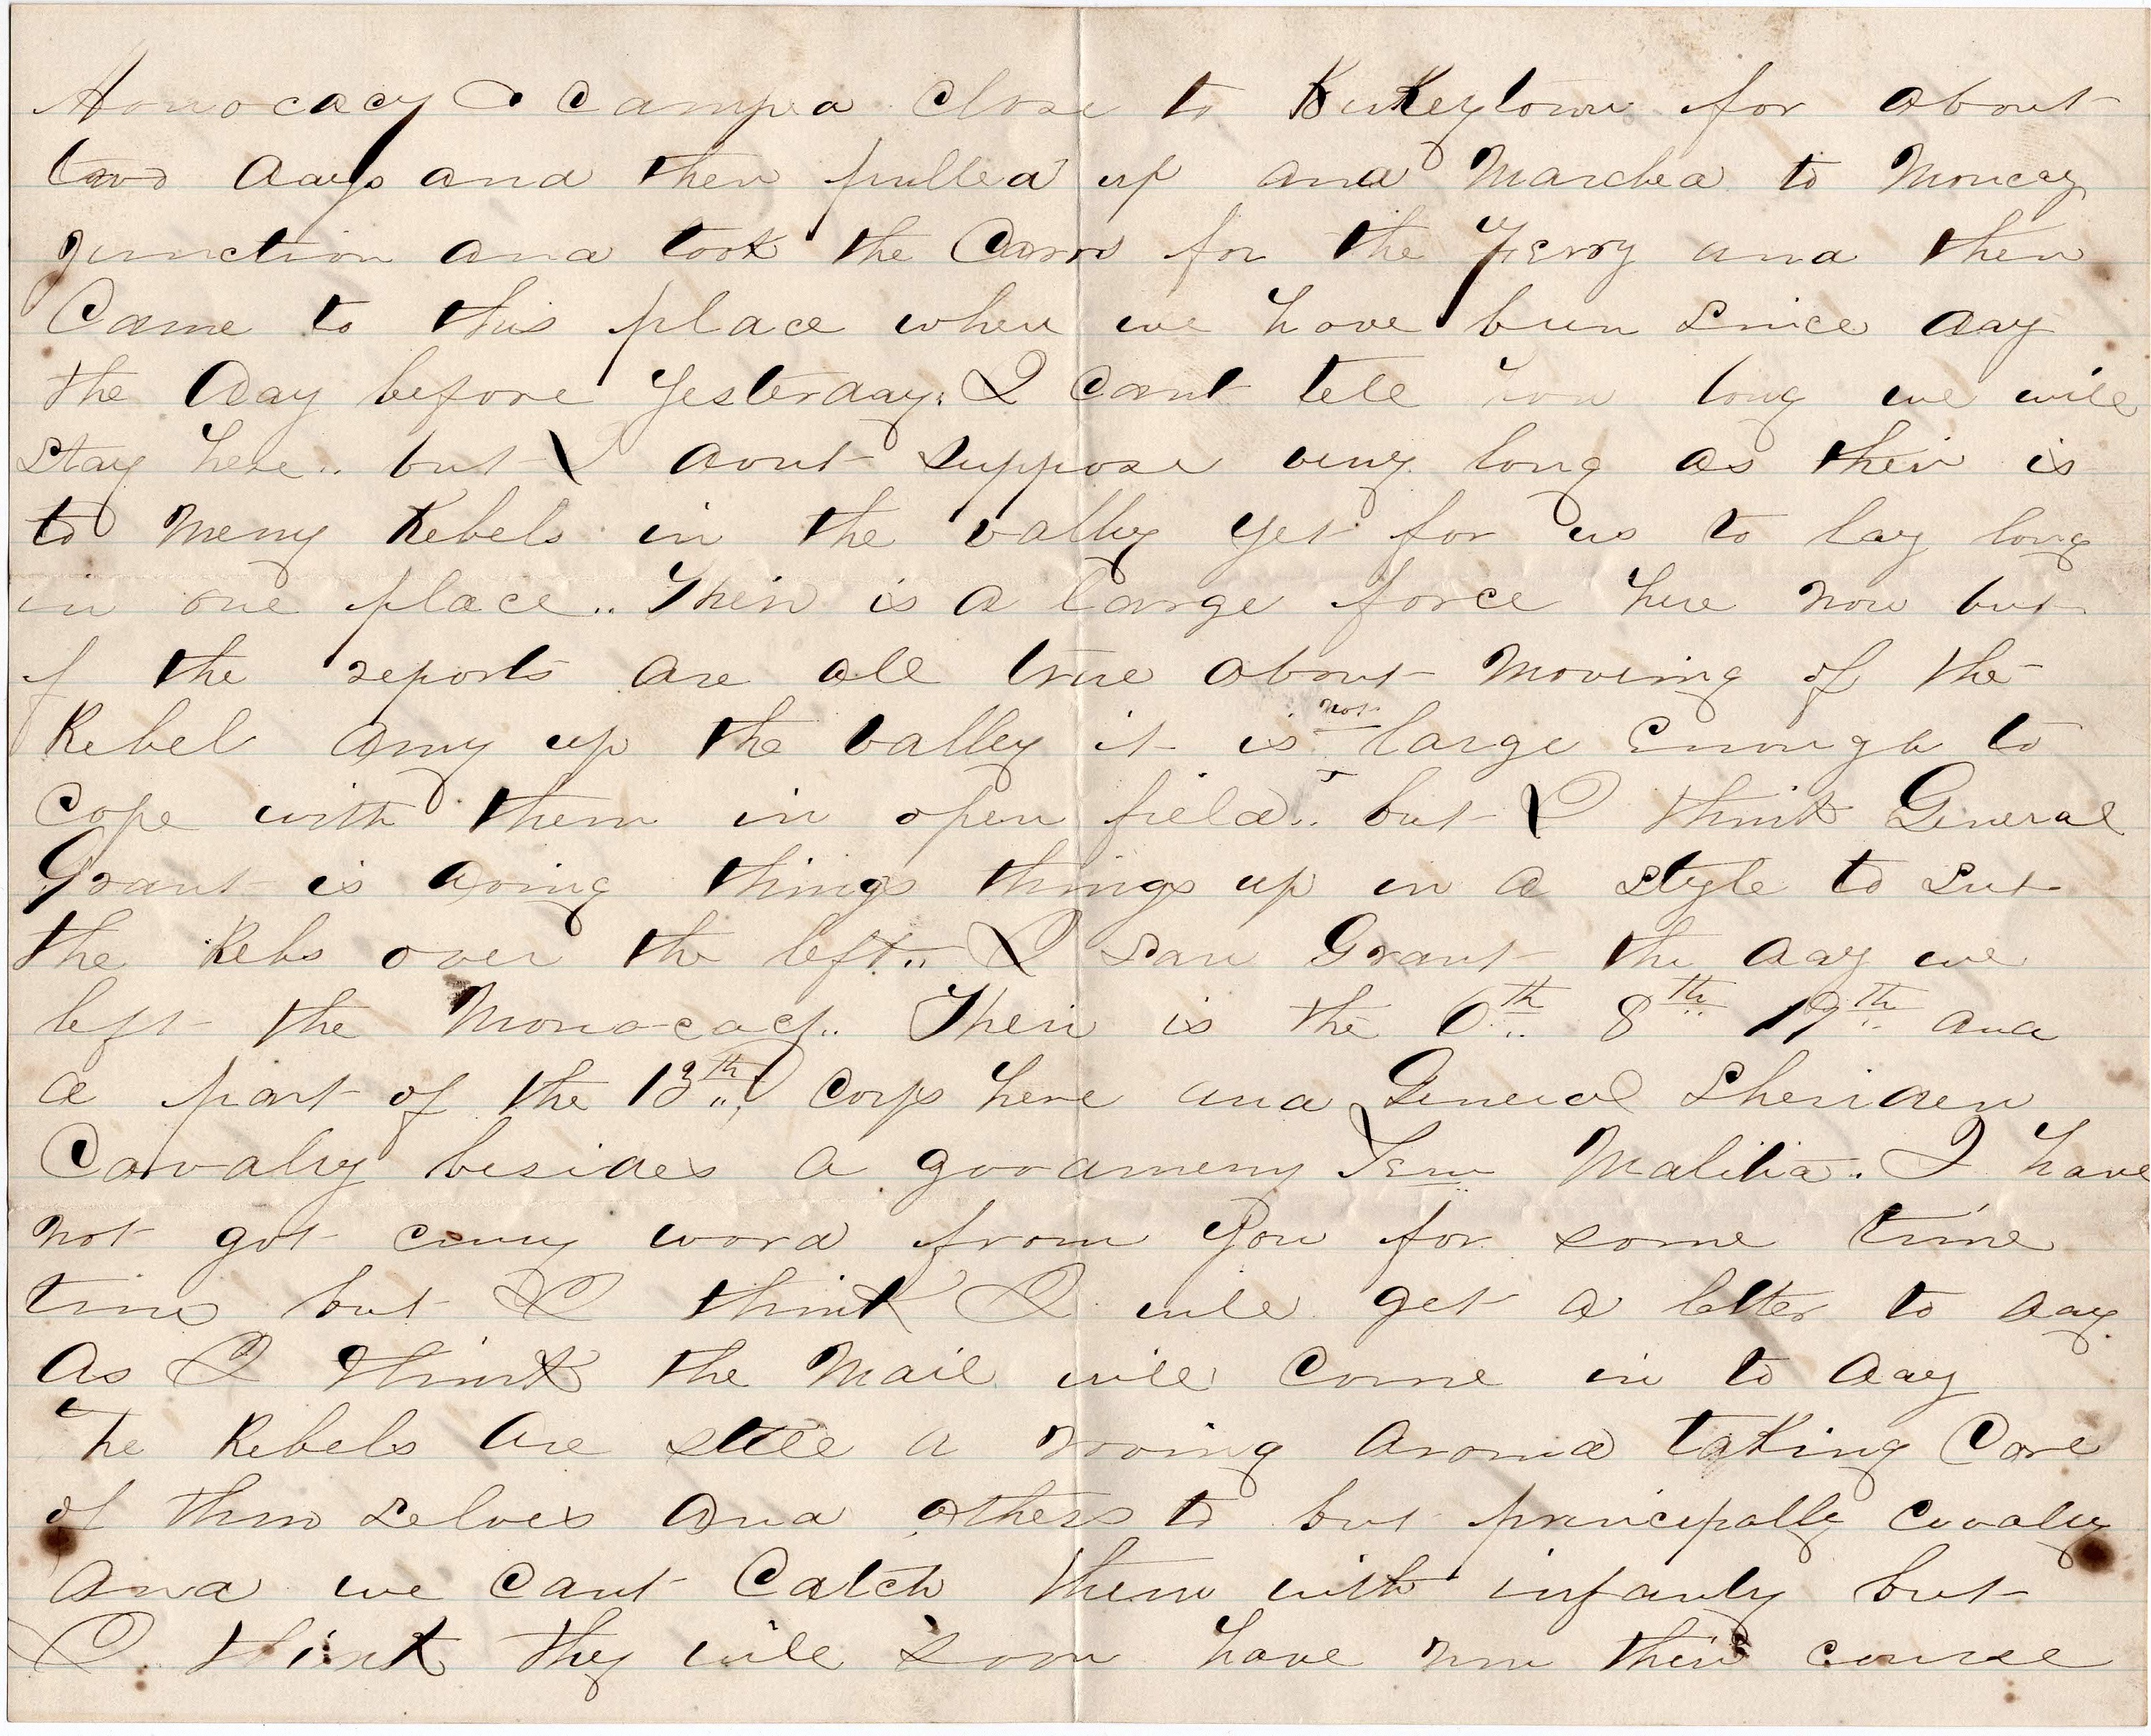 Monocacy & Camped Close to Buckeytown for about
two days and then pulled up and Marched to Moncay
Junction and took the Carrs for the Ferry and then
Came to this place when we have bun Since day
the Day before Yesterday. I Cant tell how long we will
Stay here.. but I dont Suppose very long as their is
to meny Rebels in the vally yet for us to lay long
in one place.. Their is a large force here now but
if the reports are all true about moveing of the
Rebel Army up the valley it is not large Enough to
Cope with them in open field.. but I think General
Grant is doing things things up in a style to Sut
the Rebs over the left.. I Saw Grant the day we
left the Monocacy.. Their is the 6th 8th 19th and
a part of the 13th Corps here and General Sheriden
Cavalry besides a good meny Malitia.. I have
not got eny word from you for some time
time but I think I will get a letter to day
As I think the Mail will Come in to day
The Rebels are still a roving around taking Care
of them Selves and others to but principally Cavalry
And we Cant Catch them with infantry but
I think they will soon have run their course